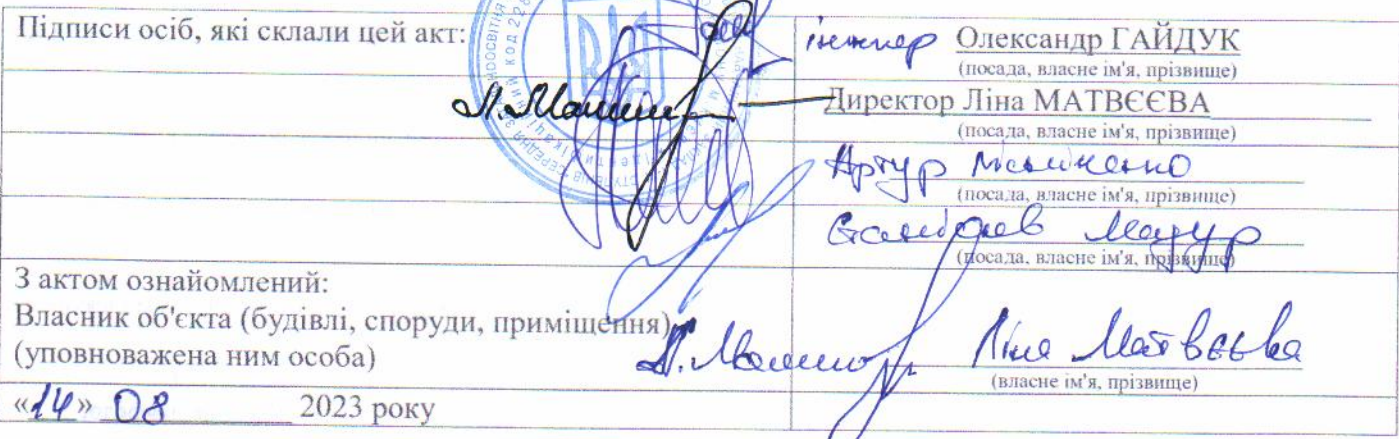 Підписи осіб, які склали цей акт:
інженер Олександр ГАЙДУК
(посада, власне ім'я, прізвище)
Директор Ліна МАТВЄЄВА
(посада, власне ім'я, прізвище)
Артур
(посада, власне ім'я, прізвище)
Мазур
(посада, власне ім'я, прізвище)
З актом ознайомлений:
Власник об'єкта (будівлі, споруди, приміщення)
(уповноважена ним особа)
Ліна Матвєєва
(власне ім'я, прізвище)
«14» 08 2023 року